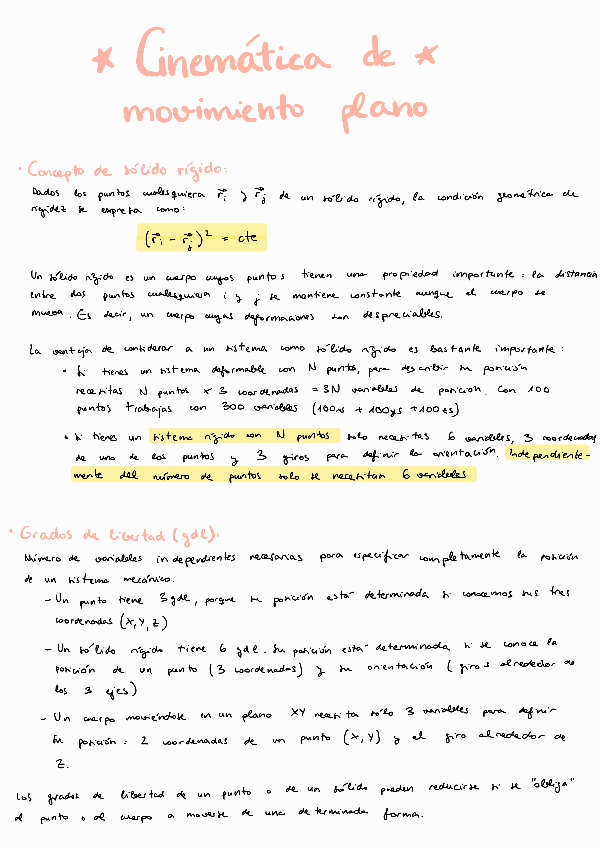 * Cinemática de *
movimiento plano
· Concepto de sólido rígido:
Dados los puntos cualesquiera r⃗i y r⃗j de un sólido rígido, la condición geométrica de
rigidez se expresa como:
(r⃗i - r⃗j)² = cte
Un sólido rígido es un cuerpo cuyos puntos tienen una propiedad importante: la distancia
entre dos puntos cualesquiera i y j se mantiene constante aunque el cuerpo se
mueva. Es decir, un cuerpo cuyas deformaciones son despreciables.
La ventaja de considerar a un sistema como sólido rígido es bastante importante:
• Si tienes un sistema deformable con N puntos, para describir su posición
necesitas N puntos x 3 coordenadas = 3N variables de posición. Con 100
puntos trabajas con 300 variables (100xs + 100ys + 100zs)
• Si tienes un sistema rígido con N puntos solo necesitas 6 variables, 3 coordenadas
de uno de los puntos y 3 giros para definir la orientación. Independiente-
mente del número de puntos solo se necesitan 6 variables
· Grados de libertad (gdl).
Número de variables independientes necesarias para especificar completamente la posición
de un sistema mecánico.
- Un punto tiene 3 gdl, porque su posición está determinada si conocemos sus tres
coordenadas (X, Y, Z)
- Un sólido rígido tiene 6 gdl. Su posición está determinada si se conoce la
posición de un punto (3 coordenadas) y su orientación (giros alrededor de
los 3 ejes)
- Un cuerpo moviéndose en un plano XY necesita sólo 3 variables para definir
su posición: 2 coordenadas de un punto (X, Y) y el giro alrededor de
Z.
Los grados de libertad de un punto o de un sólido pueden reducirse si se "obliga"
al punto o al cuerpo a moverse de una determinada forma.